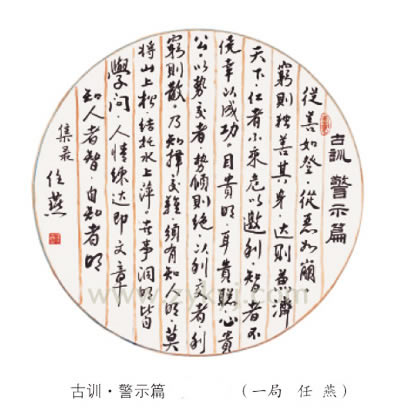 古訓 警示篇
從善如登·從惡如崩
窮則獨善其身·达則兼濟
天下·仁者不乘危以邀利·智者不
僥幸以成功·目貴明·耳貴聰·心貴
公·以勢交者·勢傾則絕·以利交者·利
窮則散·乃知擇交難·須有知明·莫
將山上松·結托水上萍·世事洞明皆
學問·人情練达即文章
知人者智·自知者明
任燕
古训·警示篇 （一局 任 燕）